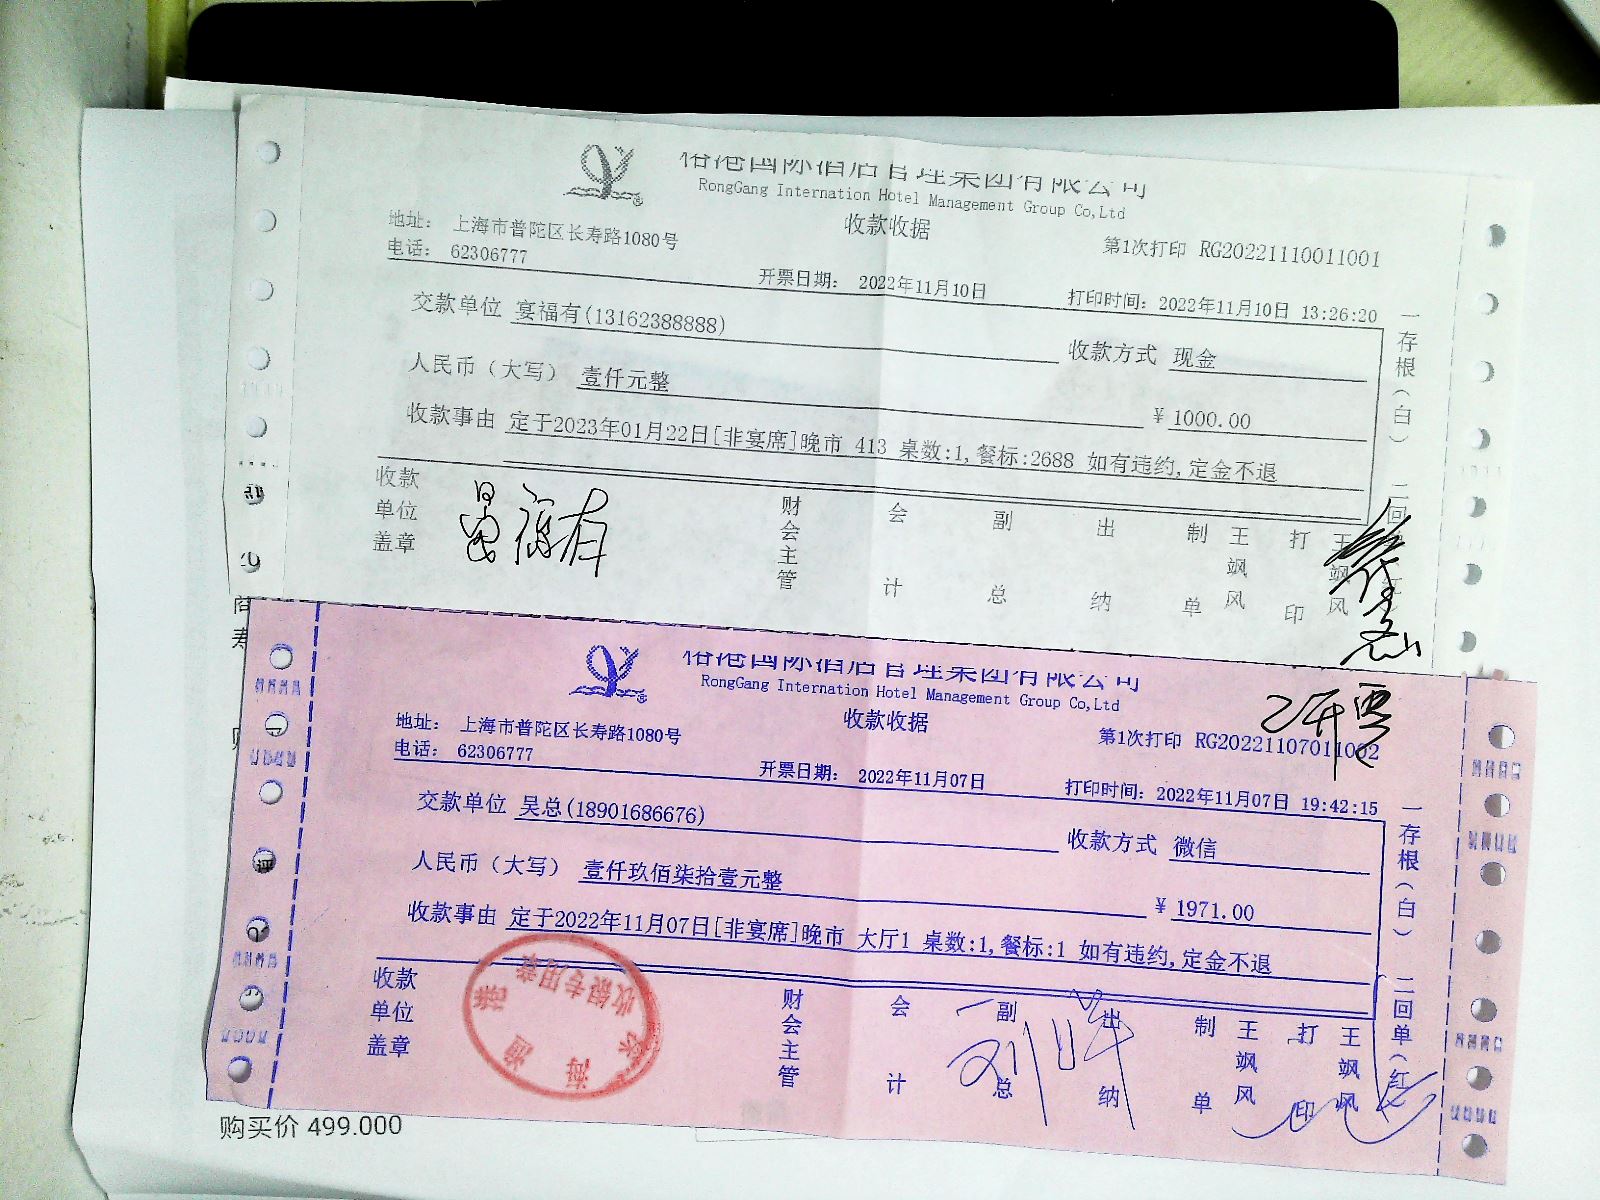 榕港国际酒店管理集团有限公司
RongGang Internation Hotel Management Group Co,Ltd
收款收据
地址： 上海市普陀区长寿路1080号
电话： 62306777
第1次打印 RG20221110011001
开票日期： 2022年11月10日
打印时间： 2022年11月10日 13:26:20
交款单位 宴福有(13162388888)
收款方式 现金
人民币（大写） 壹仟元整
¥ 1000.00
收款事由 定于2023年01月22日[非宴席]晚市 413 桌数:1,餐标:2688 如有违约,定金不退
一存根（白） 二回
收款单位盖章
财会主管 会计 副总 出纳 制单 王飒风 打印 王飒风
榕港国际酒店管理集团有限公司
RongGang Internation Hotel Management Group Co,Ltd
收款收据
已开票
地址： 上海市普陀区长寿路1080号
电话： 62306777
第1次打印 RG20221107011002
开票日期： 2022年11月07日
打印时间： 2022年11月07日 19:42:15
交款单位 吴总(18901686676)
收款方式 微信
人民币（大写） 壹仟玖佰柒拾壹元整
¥ 1971.00
收款事由 定于2022年11月07日[非宴席]晚市 大厅1 桌数:1,餐标:1 如有违约,定金不退
一存根（白） 二回单（红）
收款单位盖章
收银专用章
财会主管 会计 副总 出纳 制单 王飒风 打印 王飒风
购买价 499.000